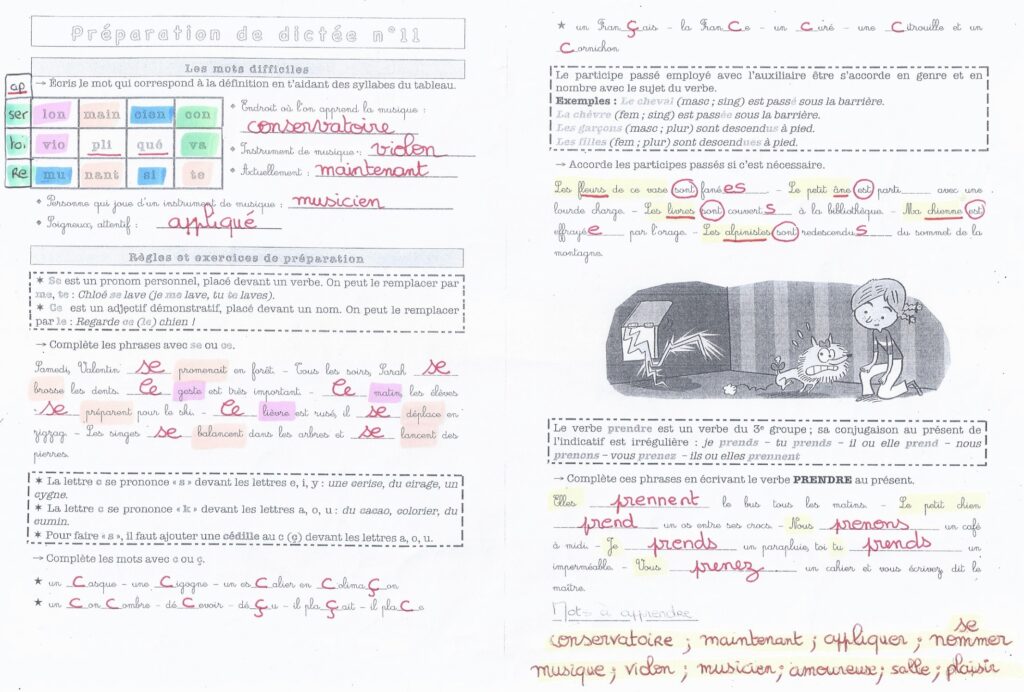 Préparation de dictée n°11
Les mots difficiles
→ Écris le mot qui correspond à la définition en t'aidant des syllabes du tableau.
ap
ser lon main cien con
toi vio pli qué va
Re mu nant si te
• Endroit où l'on apprend la musique :
conservatoire
• Instrument de musique : violon
• Actuellement : maintenant
• Personne qui joue d'un instrument de musique : musicien
• Soigneux, attentif : appliqué
Règles et exercices de préparation
✶ Se est un pronom personnel, placé devant un verbe. On peut le remplacer par
me, te : Chloé se lave (je me lave, tu te laves).
✶ Ce est un adjectif démonstratif, placé devant un nom. On peut le remplacer
par le : Regarde ce (le) chien !
→ Complète les phrases avec se ou ce.
Samedi, Valentin se promenait en forêt. – Tous les soirs, Sarah se
brosse les dents. Ce geste est très important. – Ce matin, les élèves
se préparent pour le ski. – Ce lièvre est rusé, il se déplace en
zigzag. – Les singes se balancent dans les arbres et se lancent des
pierres.
✶ La lettre c se prononce « s » devant les lettres e, i, y : une cerise, du cirage, un
cygne.
✶ La lettre c se prononce « k » devant les lettres a, o, u : du cacao, colorier, du
cumin.
✶ Pour faire « s », il faut ajouter une cédille au c (ç) devant les lettres a, o, u.
→ Complète les mots avec c ou ç.
★ un Casque – une Cigogne – un esCalier en ColimaÇon
★ un ConCombre – déCevoir – déÇu – il plaÇait – il plaCe
★ un FranÇais – la FranCe – un Curé – une Citrouille et un
Cornichon
Le participe passé employé avec l'auxiliaire être s'accorde en genre et en
nombre avec le sujet du verbe.
Exemples : Le cheval (masc ; sing) est passé sous la barrière.
La chèvre (fem ; sing) est passée sous la barrière.
Les garçons (masc ; plur) sont descendus à pied.
Les filles (fem ; plur) sont descendues à pied.
→ Accorde les participes passés si c'est nécessaire.
Les fleurs de ce vase sont fanées – Le petit âne est parti avec une
lourde charge. – Les livres sont couverts à la bibliothèque. – Ma chienne est
effrayée par l'orage. – Les alpinistes sont redescendus du sommet de la
montagne.
Le verbe prendre est un verbe du 3e groupe ; sa conjugaison au présent de
l'indicatif est irrégulière : je prends – tu prends – il ou elle prend – nous
prenons – vous prenez – ils ou elles prennent
→ Complète ces phrases en écrivant le verbe PRENDRE au présent.
Elles prennent le bus tous les matins. – Le petit chien
prend un os entre ses crocs. – Nous prenons un café
à midi. – Je prends un parapluie, toi tu prends un
imperméable. – Vous prenez un cahier et vous écrivez dit le
maître.
Mots à apprendre
se
conservatoire ; maintenant ; appliquer ; nommer
musique ; violon ; musicien ; amoureuse ; salle ; plaisir